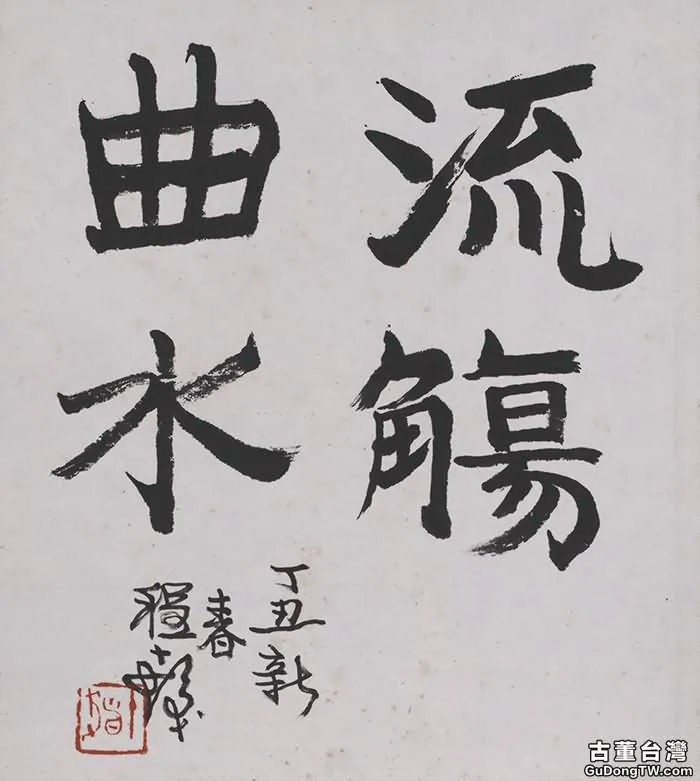 流觴
曲水
丁丑新
春
程十髮
古董台灣
GuDongTW.com